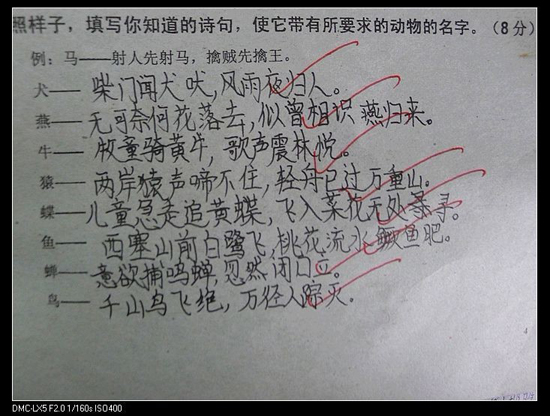 照样子，填写你知道的诗句，使它带有所要求的动物的名字。（8分）
例：马——射人先射马，擒贼先擒王。
犬—— 柴门闻犬吠，风雨夜归人。
燕—— 无可奈何花落去，似曾相识燕归来。
牛—— 牧童骑黄牛，歌声震林悦。
猿—— 两岸猿声啼不住，轻舟已过万重山。
蝶—— 儿童急走追黄蝶，飞入菜花无处寻。
鱼—— 西塞山前白鹭飞，桃花流水鳜鱼肥。
蝉—— 意欲捕鸣蝉，忽然闭口立。
鸟—— 千山鸟飞绝，万径人踪灭。
DMC-LX5 F2.0 1/160s ISO400